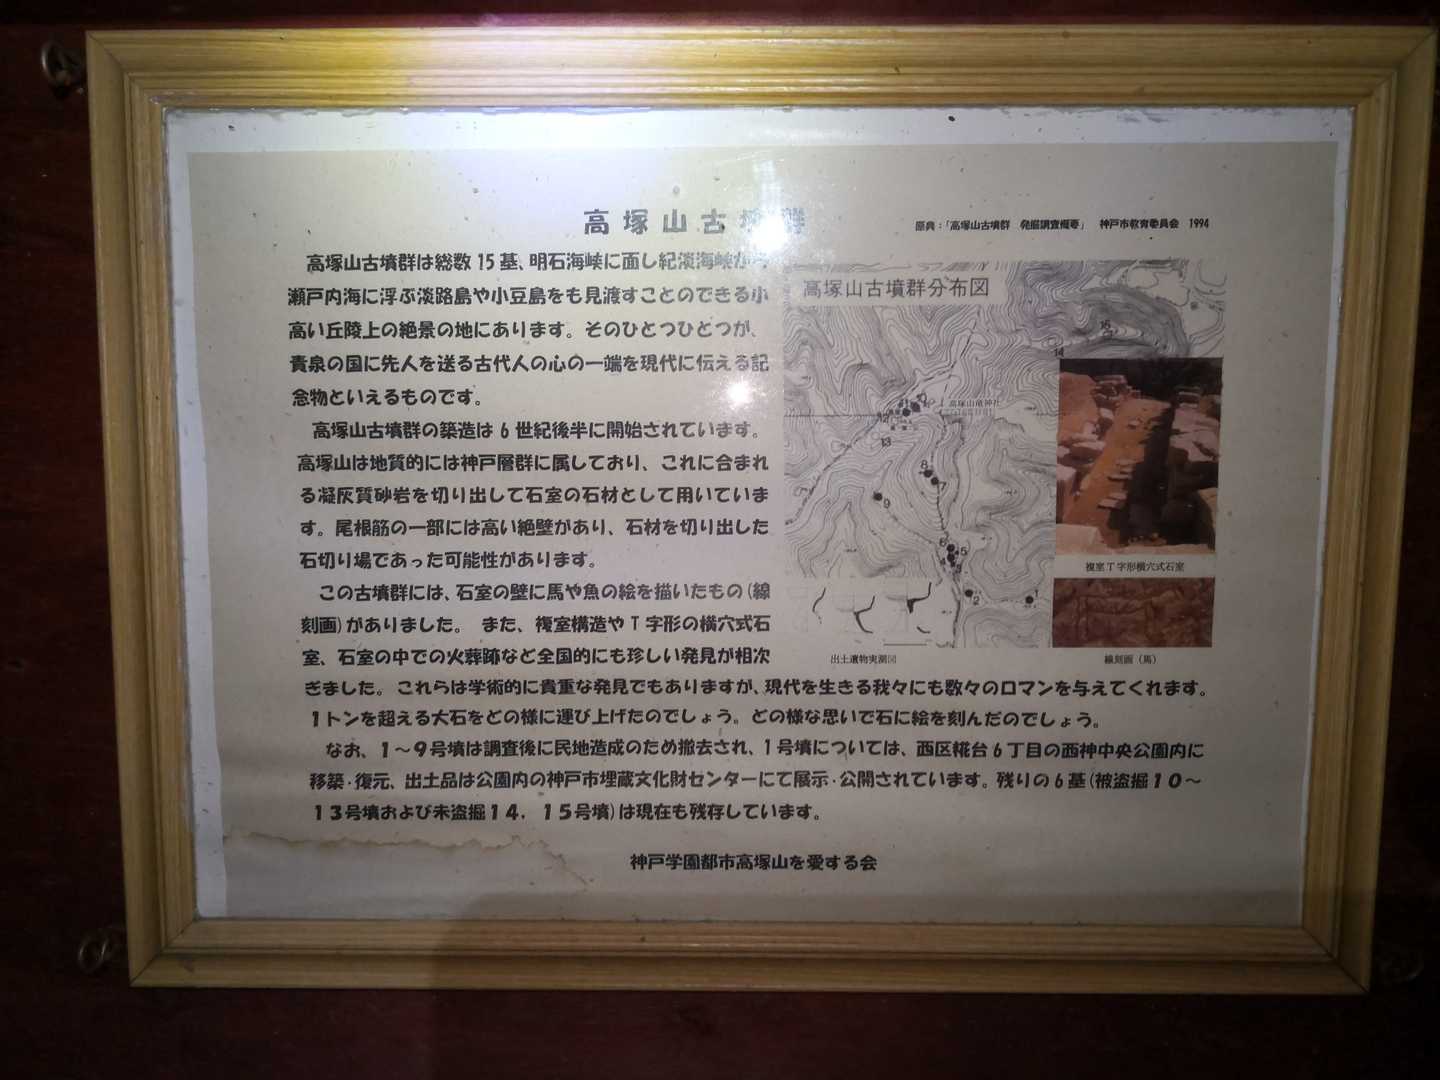 高塚山古墳群
原典：「高塚山古墳群　発掘調査概要」　神戸市教育委員会　1994
高塚山古墳群は総数15基、明石海峡に面し紀淡海峡から
瀬戸内海に浮ぶ淡路島や小豆島をも見渡すことのできる小
高い丘陵上の絶景の地にあります。そのひとつひとつが、
貴泉の国に先人を送る古代人の心の一端を現代に伝える記
念物といえるものです。
高塚山古墳群の築造は6世紀後半に開始されています。
高塚山は地質的には神戸層群に属しており、これに含まれ
る凝灰質砂岩を切り出して石室の石材として用いていま
す。尾根筋の一部には高い絶壁があり、石材を切り出した
石切り場であった可能性があります。
この古墳群には、石室の壁に馬や魚の絵を描いたもの(線
刻画)がありました。　また、複室構造やT字形の横穴式石
室、石室の中での火葬跡など全国的にも珍しい発見が相次
ぎました。これらは学術的に貴重な発見でもありますが、現代を生きる我々にも数々のロマンを与えてくれます。
1トンを超える大石をどの様に運び上げたのでしょう。どの様な思いで石に絵を刻んだのでしょう。
なお、1～9号墳は調査後に民地造成のため撤去され、1号墳については、西区糀台6丁目の西神中央公園内に
移築・復元、出土品は公園内の神戸市埋蔵文化財センターにて展示・公開されています。残りの6基(被盗掘10～
13号墳および未盗掘14．15号墳)は現在も残存しています。
神戸学園都市高塚山を愛する会
高塚山古墳群分布図
15
14
高塚山竜神社
12
13
8
7
9
6
5
2
1
複室T字形横穴式石室
出土遺物実測図
線刻画（馬）